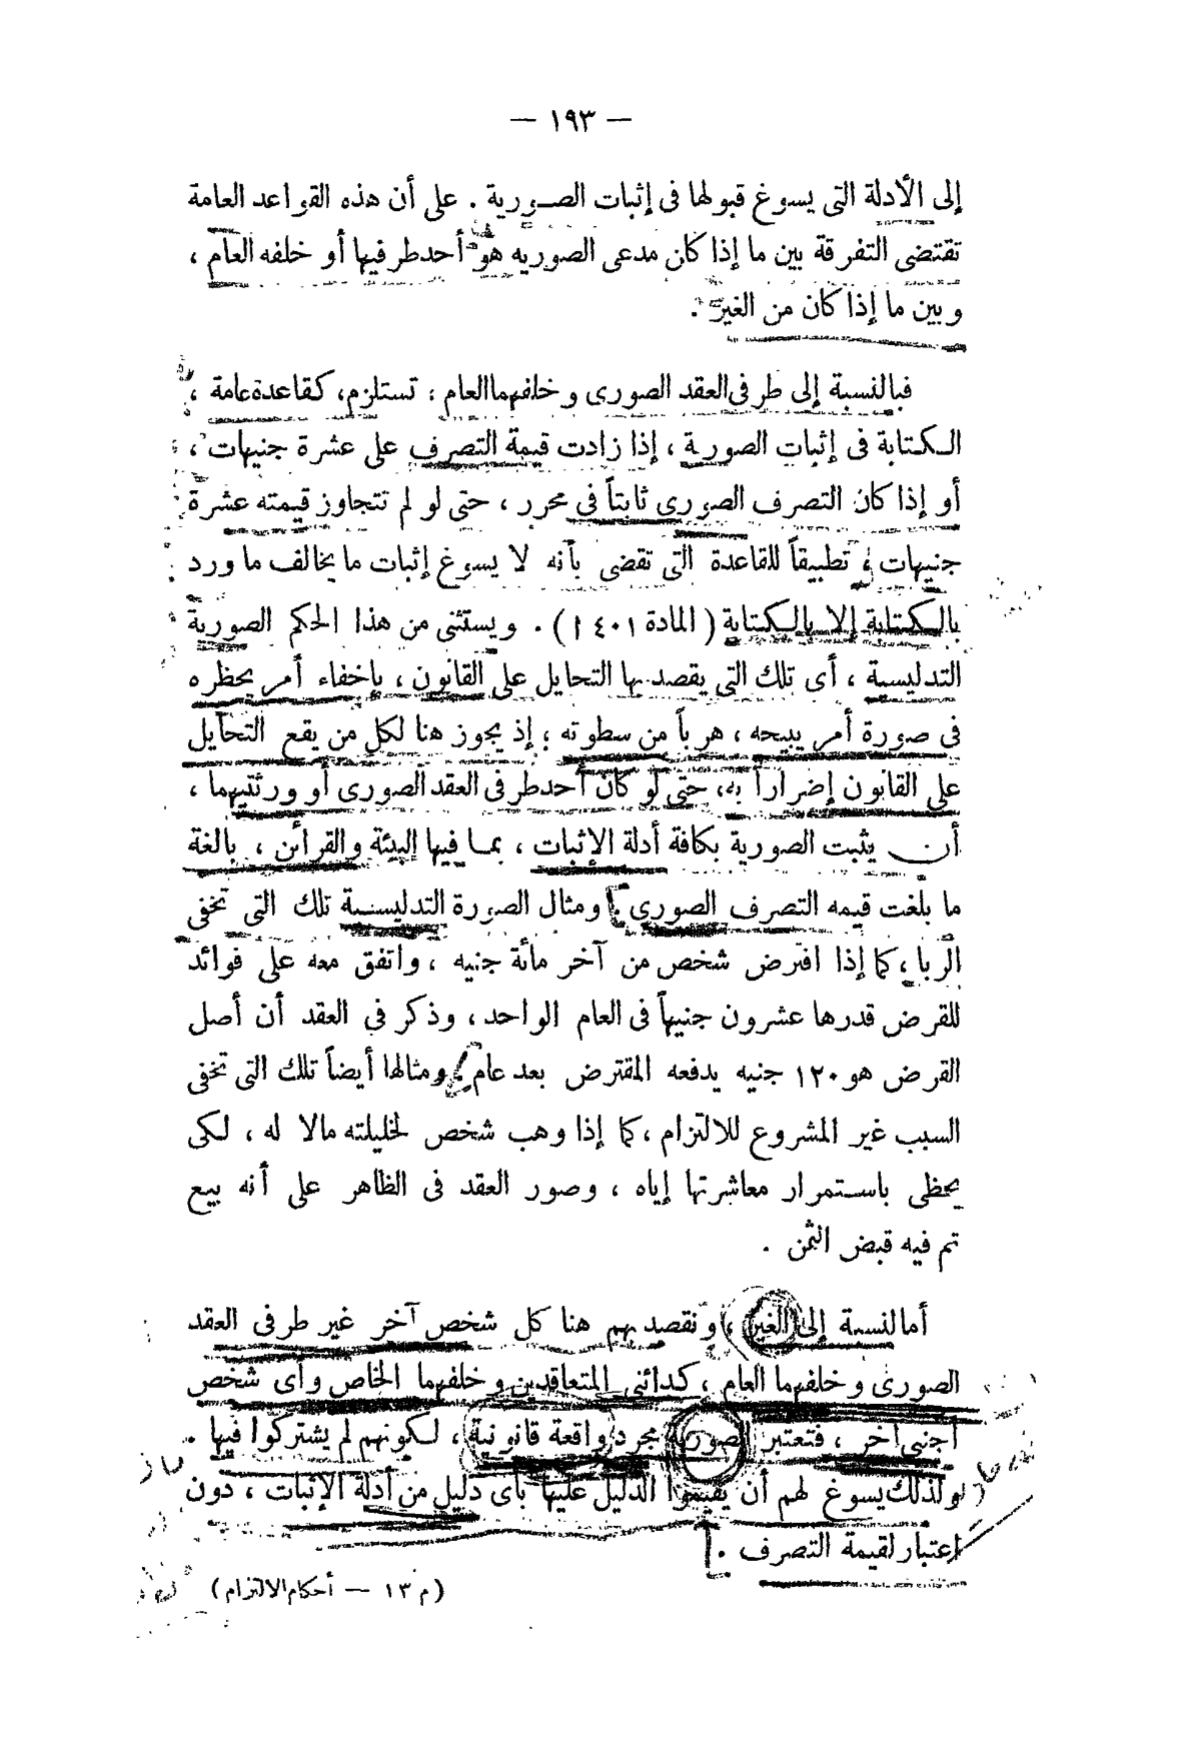 — ١٩٣ —
إلى الأدلة التى يسوغ قبولها فى إثبات الصورية . على أن هذه القواعد العامة
تقتضى التفرقة بين ما إذا كان مدعى الصوريه هو أحد طرفيها أو خلفه العام ،
وبين ما إذا كان من الغير .
فبالنسبة إلى طرفى العقد الصورى وخلفهما العام ، تستلزم، كقاعدة عامة ،
الكتابة فى إثبات الصورية ، إذا زادت قيمة التصرف على عشرة جنيهات ،
أو إذا كان التصرف الصورى ثابتاً فى محرر ، حتى لو لم تتجاوز قيمته عشرة
جنيهات ، تطبيقاً للقاعدة التى تقضى بأنه لا يسوغ إثبات ما يخالف ما ورد
بالكتابة إلا بالكتابة ( المادة ٤٠١ / ١ ) . ويستثنى من هذا الحكم الصورية
التدليسية ، أى تلك التى يقصد بها التحايل على القانون ، بإخفاء أمر يحظره
فى صورة أمر يبيحه ، هرباً من سطوته ؛ إذ يجوز هنا لكل من يقع التحايل
على القانون إضراراً به، حتى لو كان أحد طرفى العقد الصورى أو ورثتيهما ،
أن يثبت الصورية بكافة أدلة الإثبات ، بما فيها البينة والقرائن ، بالغة
ما بلغت قيمه التصرف الصورى . ومثال الصورة التدليسية تلك التى تخفى
الربا ، كما إذا اقترض شخص من آخر مائة جنيه ، واتفق معه على فوائد
للقرض قدرها عشرون جنيهاً فى العام الواحد ، وذكر فى العقد أن أصل
القرض هو ١٢٠ جنيه يدفعه المقترض بعد عام . ومثالها أيضاً تلك التى تخفى
السبب غير المشروع للالتزام ، كما إذا وهب شخص لخليلته مالا له ، لكى
يحظى باستمرار معاشرتها إياه ، وصور العقد فى الظاهر على أنه بيع
تم فيه قبض الثمن .
أما لنسبة إلى الغير ، ونقصد بهم هنا كل شخص آخر غير طرفى العقد
الصورى وخلفهما العام ، كدائنى المتعاقدين وخلفهما الخاص وأى شخص
أجنبى آخر ، فتعتبر الصورية مجرد واقعة قانونية ، لكونهم لم يشتركوا فيها .
ولذلك يسوغ لهم أن يقيموا الدليل عليها بأى دليل من أدلة الإثبات ، دون
اعتبار لقيمة التصرف .
(م ١٣ — أحكام الالتزام )